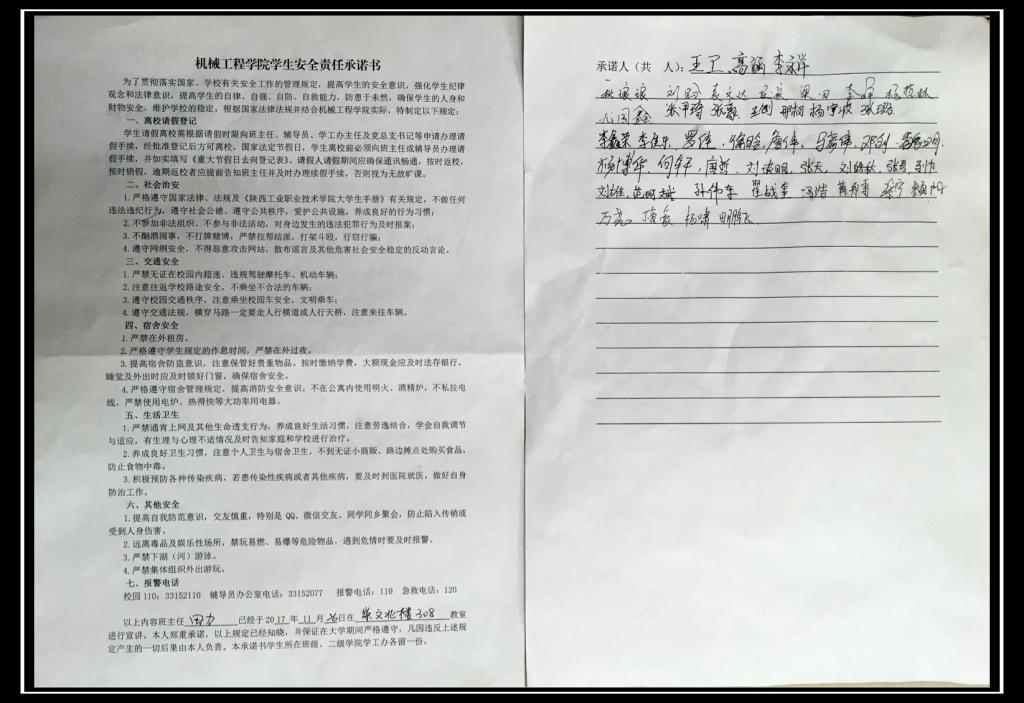 机械工程学院学生安全责任承诺书
为了贯彻落实国家、学校有关安全工作的管理规定，提高学生的安全意识，强化学生纪律
观念和法律意识，提高学生的自律、自强、自防、自救能力。防患于未然，确保学生的人身和
财物安全，维护学校的稳定，根据国家法律法规并结合机械工程学院实际，特制定以下规定：
一、离校请假登记
学生请假离校需根据请假时限向班主任、辅导员、学工办主任及党总支书记等申请办理请
假手续，经批准登记后方可离校。国家法定节假日，学生离校前必须向班主任或辅导员办理请
假手续，并如实填写《重大节假日去向登记表》。请假人请假期间应确保通讯畅通，按时返校，
按时销假，逾期返校者应提前告知班主任并及时办理续假手续，否则视为无故旷课。
二、社会治安
1.严格遵守国家法律、法规及《陕西工业职业技术学院大学生手册》有关规定，不做任何
违法违纪行为，遵守社会公德、遵守公共秩序，爱护公共设施，养成良好的行为习惯；
2.不参加非法组织、不参与非法活动，对身边发生的违法犯罪行为及时报案；
3.不酗酒闹事，不打牌赌博，严禁拉帮结派，打架斗殴，行窃行骗；
4.遵守网纲安全，不得恶意攻击网站，散布谣言及其他危害社会安全稳定的反动言论。
三、交通安全
1.严禁无证在校园内超速、违规驾驶摩托车、机动车辆；
2.注意往返学校路途安全，不乘坐不合法的车辆；
3.遵守校园交通秩序，注意乘坐校园车安全，文明乘车；
4.遵守交通法规，横穿马路一定要走人行横道或人行天桥，注意来往车辆。
四、宿舍安全
1.严禁在外租房。
2.严格遵守学生规定的作息时间，严禁在外过夜。
3.提高宿舍防盗意识，注意保管好贵重物品。按时缴纳学费，大额现金应及时送存银行。
睡觉及外出时应及时锁好门窗，确保宿舍安全。
4.严格遵守宿舍管理规定，提高消防安全意识。不在公寓内使用明火、酒精炉，不私拉电
线，严禁使用电炉、热得快等大功率用电器。
五、生活卫生
1.严禁通宵上网及其他生命透支行为，养成良好生活习惯，注意劳逸结合，学会自我调节
与适应，有生理与心理不适情况及时告知家庭和学校进行治疗。
2.养成良好卫生习惯，注意个人卫生与宿舍卫生，不到无证小商贩、路边摊点处购买食品，
防止食物中毒。
3.积极预防各种传染疾病，若患传染性疾病或者其他疾病，要及时到医院就医，做好自身
防治工作。
六、其他安全
1.提高自我防范意识，交友慎重，特别是 QQ、微信交友、同学同乡聚会，防止陷入传销或
受到人身伤害。
2.远离毒品及娱乐性场所，禁玩易燃、易爆等危险物品，遇到危情时要及时报警。
3.严禁下湖（河）游泳。
4.严禁集体组织外出游玩。
七、报警电话
校园 110：33152110 辅导员办公室电话：33152077 报警电话：110 急救电话：120
以上内容班主任 田力 已经于 2017 年 11 月 26 日在 崇文北楼308 教室
进行宣讲。本人郑重承诺，以上规定已经知晓，并保证在大学期间严格遵守，凡因违反上述规
定产生的一切后果由本人负责。本承诺书学生所在班级、二级学院学工办各留一份。
承诺人（共 人）：王卫 高涵 李祥
张甲琦 张豪 邢桐 杨宁波 张璐
李鑫荣 李佳乐 罗佳 徐晗
杨博华 何军平 刘俊明 张天
孙伟东 翟战奎 冯浩
万亮 杨啸 田鹏飞